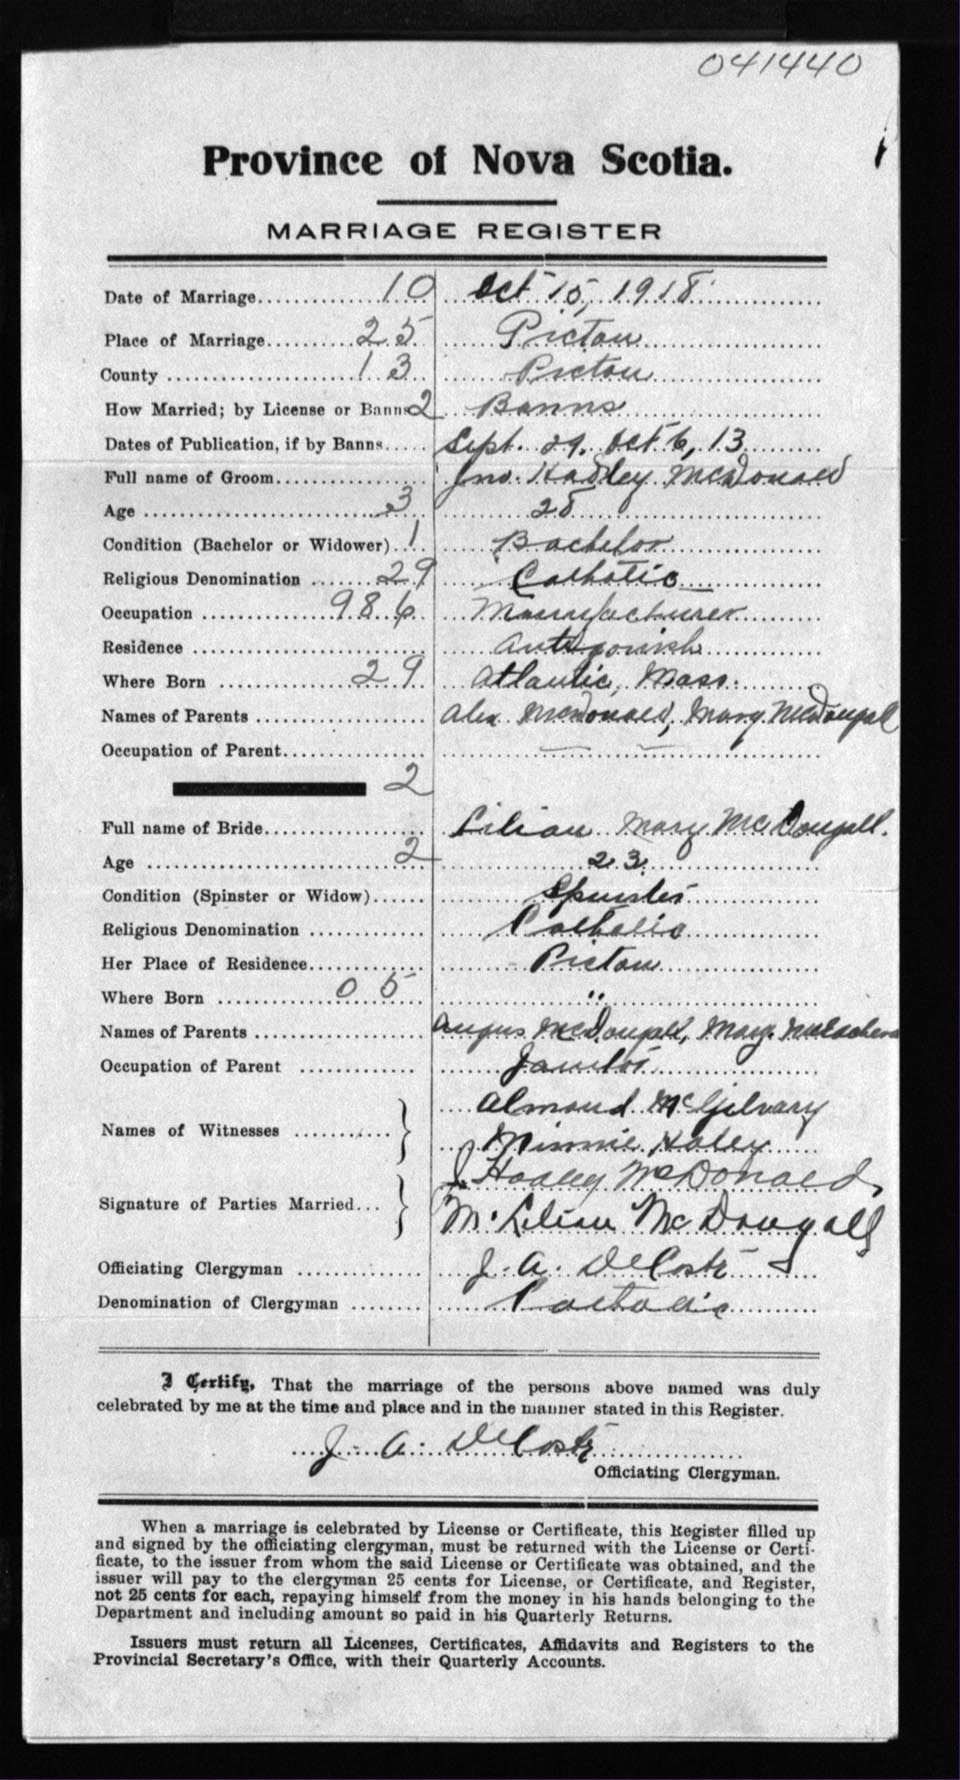 041440
Province of Nova Scotia.
MARRIAGE REGISTER
Date of Marriage 10 Oct 15, 1918
Place of Marriage 25 Pictou
County 13 Pictou
How Married; by License or Banns 2 Banns
Dates of Publication, if by Banns Sept. 29. Oct 6, 13
Full name of Groom Jno. Hadley McDonald
Age 3 28
Condition (Bachelor or Widower) 1 Bachelor
Religious Denomination 29 Catholic
Occupation 986 Manufacturer
Residence Antigonish
Where Born 29 Atlantic, Mass.
Names of Parents Alex McDonald, Mary McDougall
Occupation of Parent — —
2
Full name of Bride Lilian Mary McDougall.
Age 2 23
Condition (Spinster or Widow) Spinster
Religious Denomination Catholic
Her Place of Residence Pictou
Where Born 05 "
Names of Parents Angus McDougall, Mary McEachern
Occupation of Parent Janitor
Almond McGilvary
Names of Witnesses
Minnie Haley
J. Hadley McDonald
Signature of Parties Married
M. Lilian McDougall
Officiating Clergyman J. A. DeCoste
Denomination of Clergyman Catholic
I Certify, That the marriage of the persons above named was duly
celebrated by me at the time and place and in the manner stated in this Register.
J. A. DeCoste
Officiating Clergyman.
When a marriage is celebrated by License or Certificate, this Register filled up
and signed by the officiating clergyman, must be returned with the License or Certi-
ficate, to the issuer from whom the said License or Certificate was obtained, and the
issuer will pay to the clergyman 25 cents for License, or Certificate, and Register,
not 25 cents for each, repaying himself from the money in his hands belonging to the
Department and including amount so paid in his Quarterly Returns.
Issuers must return all Licenses, Certificates, Affidavits and Registers to the
Provincial Secretary's Office, with their Quarterly Accounts.